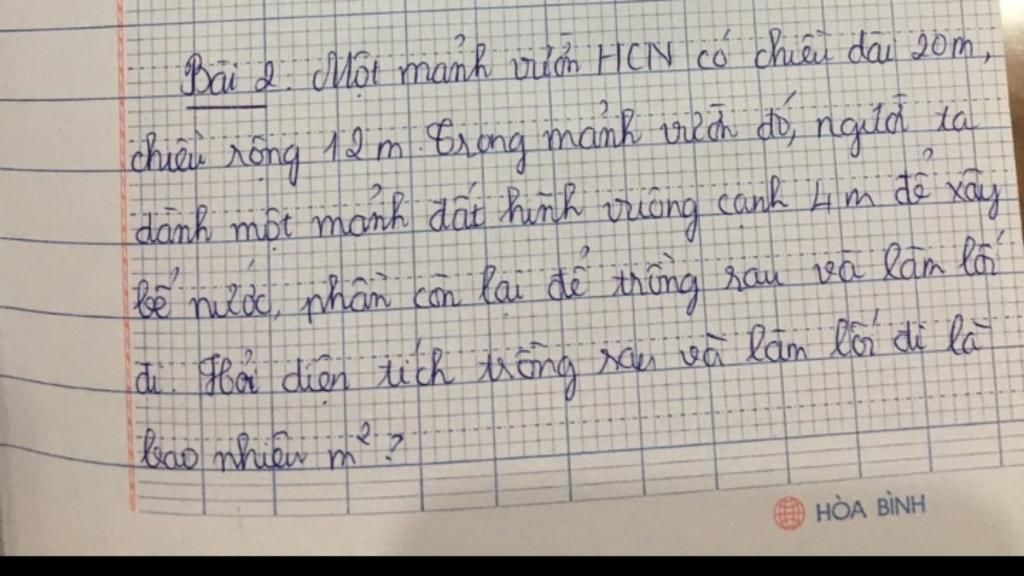 Bài 2. Một mảnh vườn HCN có chiều dài 20m,
chiều rộng 12m. Trong mảnh vườn đó, người ta
dành một mảnh đất hình vuông cạnh 4m để xây
bể nước, phần còn lại để trồng rau và làm lối
đi. Hỏi diện tích trồng rau và làm lối đi là
bao nhiêu m²?
HÒA BÌNH